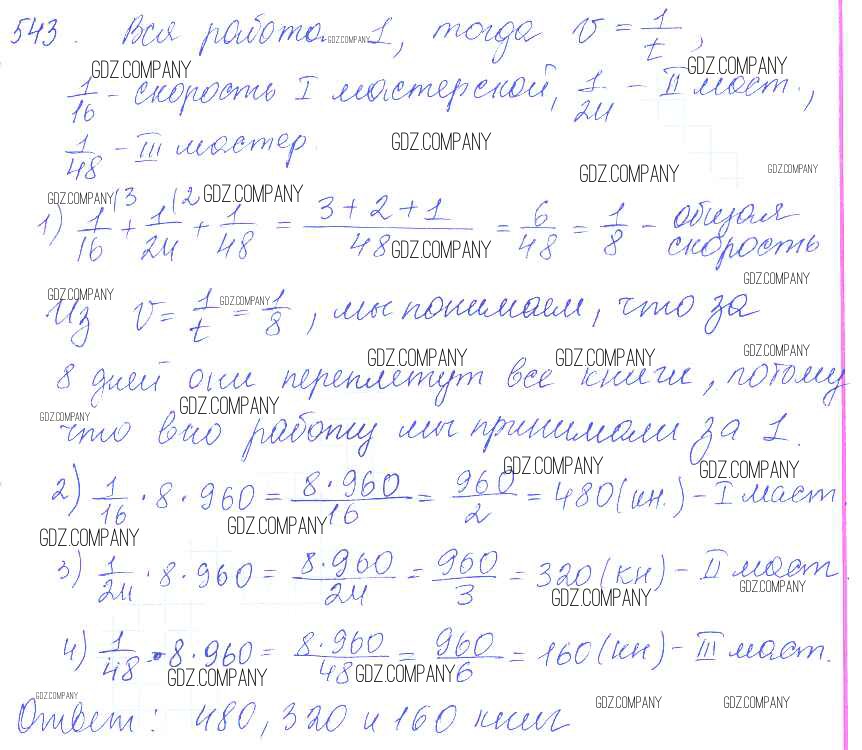 543. Вся работа 1, тогда v = 1/t,
1/16 - скорость I мастерской, 1/24 - II маст.,
1/48 - III мастер.
1) 1/16 (3 + 1/24 (2 + 1/48 = 3+2+1/48 = 6/48 = 1/8 - общая скорость
Из v = 1/t = 1/8, мы понимаем, что за
8 дней они переплетут все книги, потому
что всю работу мы принимали за 1.
2) 1/16 · 8 · 960 = 8·960/16 = 960/2 = 480 (кн.) - I маст.
3) 1/24 · 8 · 960 = 8·960/24 = 960/3 = 320 (кн) - II маст
4) 1/48 · 8 · 960 = 8·960/48 = 960/6 = 160 (кн) - III маст.
Ответ: 480, 320 и 160 книг
GDZ.COMPANY